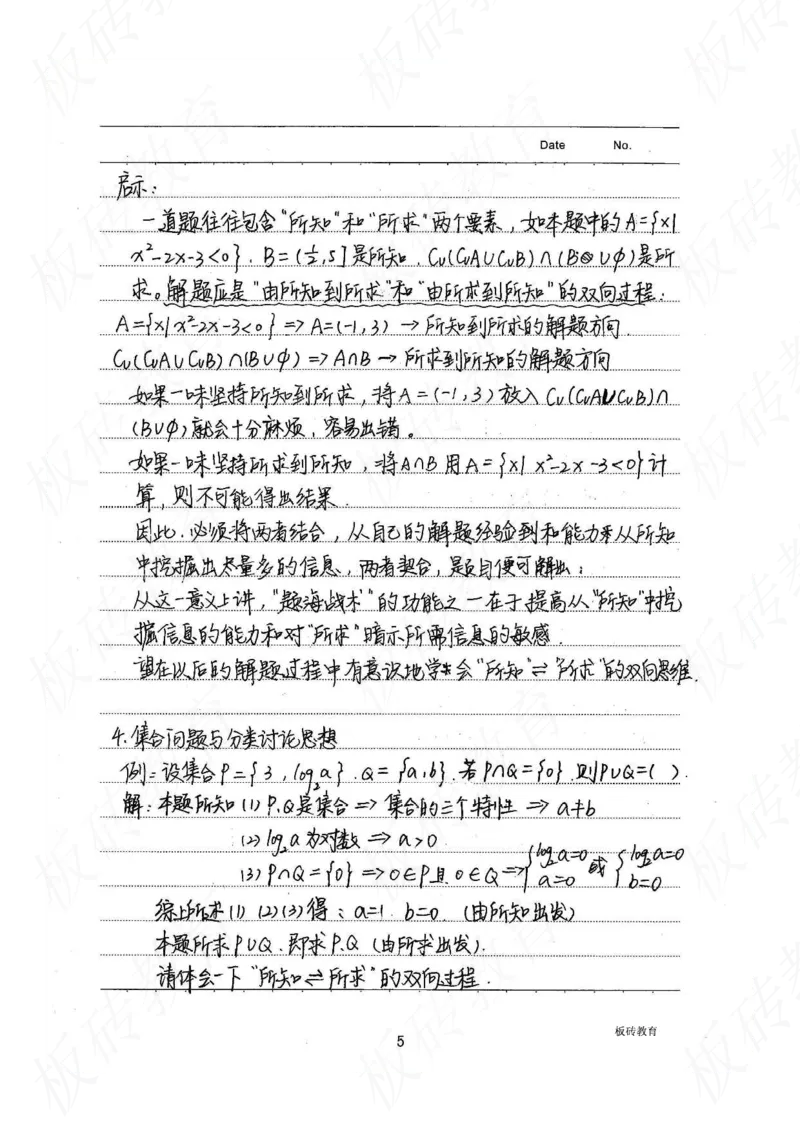 Date No.
启示：
一道题往往包含"所知"和"所求"两个要素，如本题中的A={x|
x²-2x-3<0}．B=(½,5]是所知．Cu(CuA∪CuB)∩(B∪φ)是所
求。解题应是"由所知到所求"和"由所求到所知"的双向过程：
A={x|x²-2x-3<0}=>A=(-1,3)→所知到所求的解题方向．
Cu(CuA∪CuB)∩(B∪φ)=>A∩B→所求到所知的解题方向
如果一味坚持所知到所求，将A=(-1,3)放入Cu(CuA∪CuB)∩
(B∪φ)就会十分麻烦．容易出错。
如果一味坚持所求到所知，将A∩B用A={x|x²-2x-3<0}计
算，则不可能得出结果．
因此．必须将两者结合，从自己的解题经验到和能力来从所知
中挖掘出尽量多的信息，两者契合，题目便可解出：
从这一意义上讲，"题海战术"的功能之一在于提高从"所知"中挖
掘信息的能力和对"所求"暗示所需信息的敏感．
望在以后的解题过程中有意识地学会"所知"⇌"所求"的双向思维．
4.集合问题与分类讨论思想
例：设集合P={3,log₂a}．Q={a,b}．若P∩Q={0}．则P∪Q=( )．
解：本题所知(1)P.Q是集合=>集合的三个特性=>a≠b
(2)log₂a为对数=>a>0
(3)P∩Q={0}=>0∈P且0∈Q=>{log₂a=0 a=0 或 {log₂a=0 b=0
综上所述(1)(2)(3)得：a=1．b=0．(由所知出发)
本题所求P∪Q．即求P.Q(由所求出发)．
请体会一下"所知⇌所求"的双向过程．
板砖教育
5